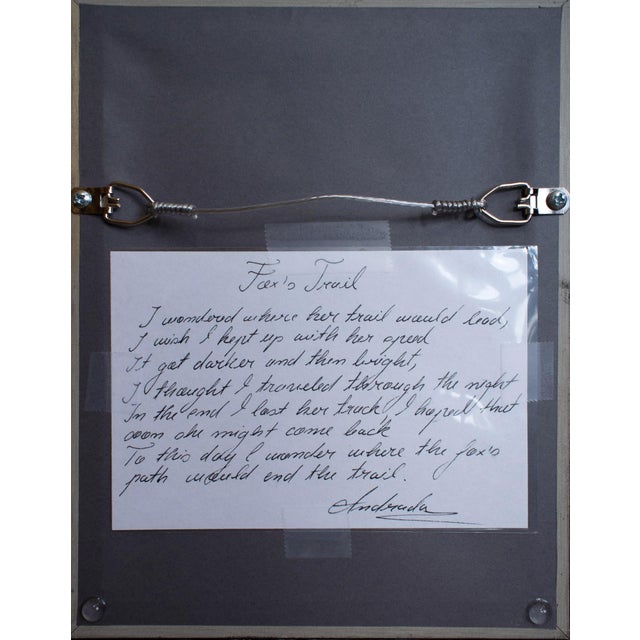 Fox's Trail
I wonderd where her trail would lead,
I wish I kept up with her speed
It got darker and then bright,
I thought I traveled through the night
In the end I lost her track, I hoped that
soon she might come back
To this day I wonder where the fox's
path would end the trail.
Andrada